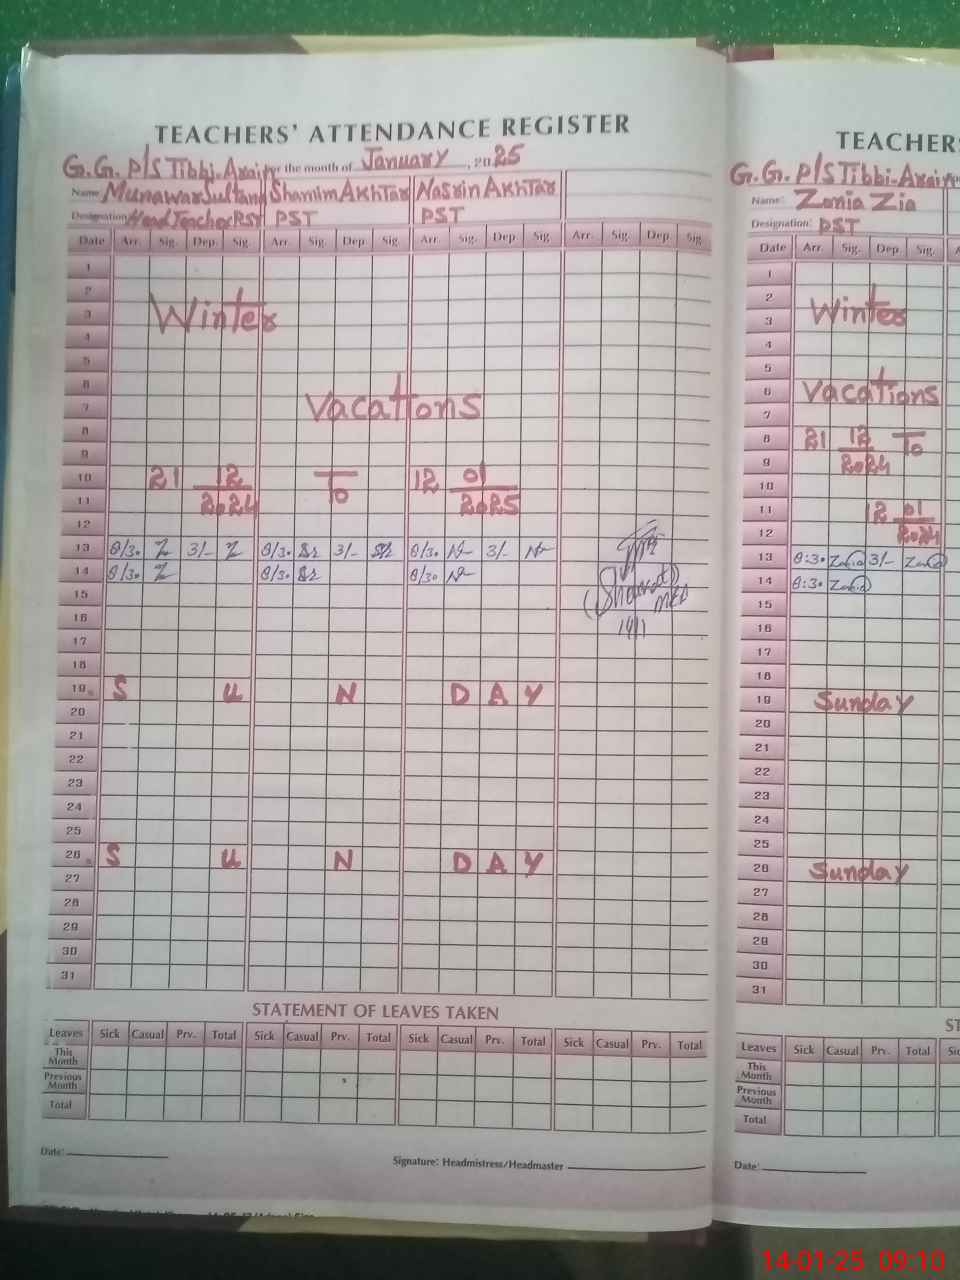 TEACHERS' ATTENDANCE REGISTER
G.G. P/S Tibbi-Arain for the month of January, 2025
Name Munawar Sultana Shamim Akhtar Nasrin Akhtar
Designation Head Teacher PST PST PST
Date Arr. Sig. Dep. Sig. Arr. Sig. Dep. Sig. Arr. Sig. Dep. Sig. Arr. Sig. Dep. Sig.
1
2
3 Winter
4
5
6
7 Vacations
8
9
10 21 12 To 12 01
11 2024 2025
12
13 8/30 3/- 8/30 3/- 8/30 3/-
14 8/30 8/30 8/30
15
16
17
18
19 S U N D A Y
20
21
22
23
24
25
26 S U N D A Y
27
28
29
30
31
STATEMENT OF LEAVES TAKEN
Leaves Sick Casual Prv. Total Sick Casual Prv. Total Sick Casual Prv. Total Sick Casual Prv. Total
This Month
Previous Month
Total
Date:
Signature: Headmistress/Headmaster
TEACHERS'
G.G. P/S Tibbi-Arain
Name: Zonia Zia
Designation: PST
Date Arr. Sig. Dep. Sig.
1
2
3 Winter
4
5
6 Vacations
7
8 21 12 To
9 2024
10
11 12 01
12 2024
13 8:30 Zonia 3/- Zonia
14 8:30 Zonia
15
16
17
18
19 Sunday
20
21
22
23
24
25
26 Sunday
27
28
29
30
31
ST
Leaves Sick Casual Prv. Total
This Month
Previous Month
Total
Date:
14-01-25 09:10